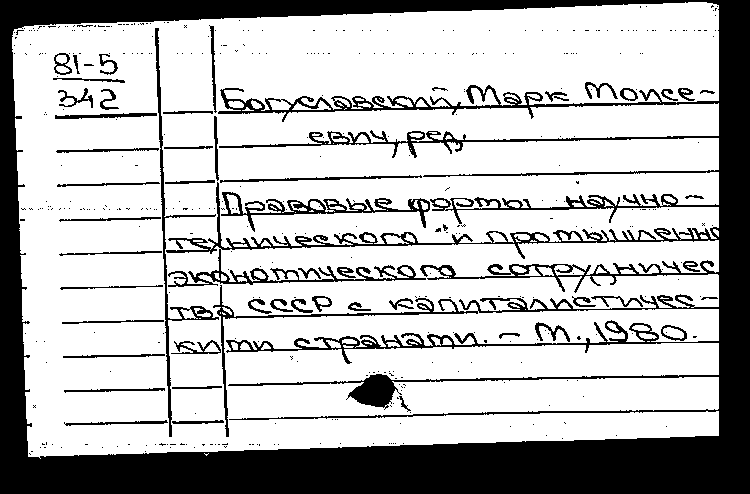 81-5
342
Богуславский, Марк Моисе-
евич, ред.
Правовые формы научно-
технического и промышленно
экономического сотрудничес
тва СССР с капиталистичес-
кими странами. - М., 1980.